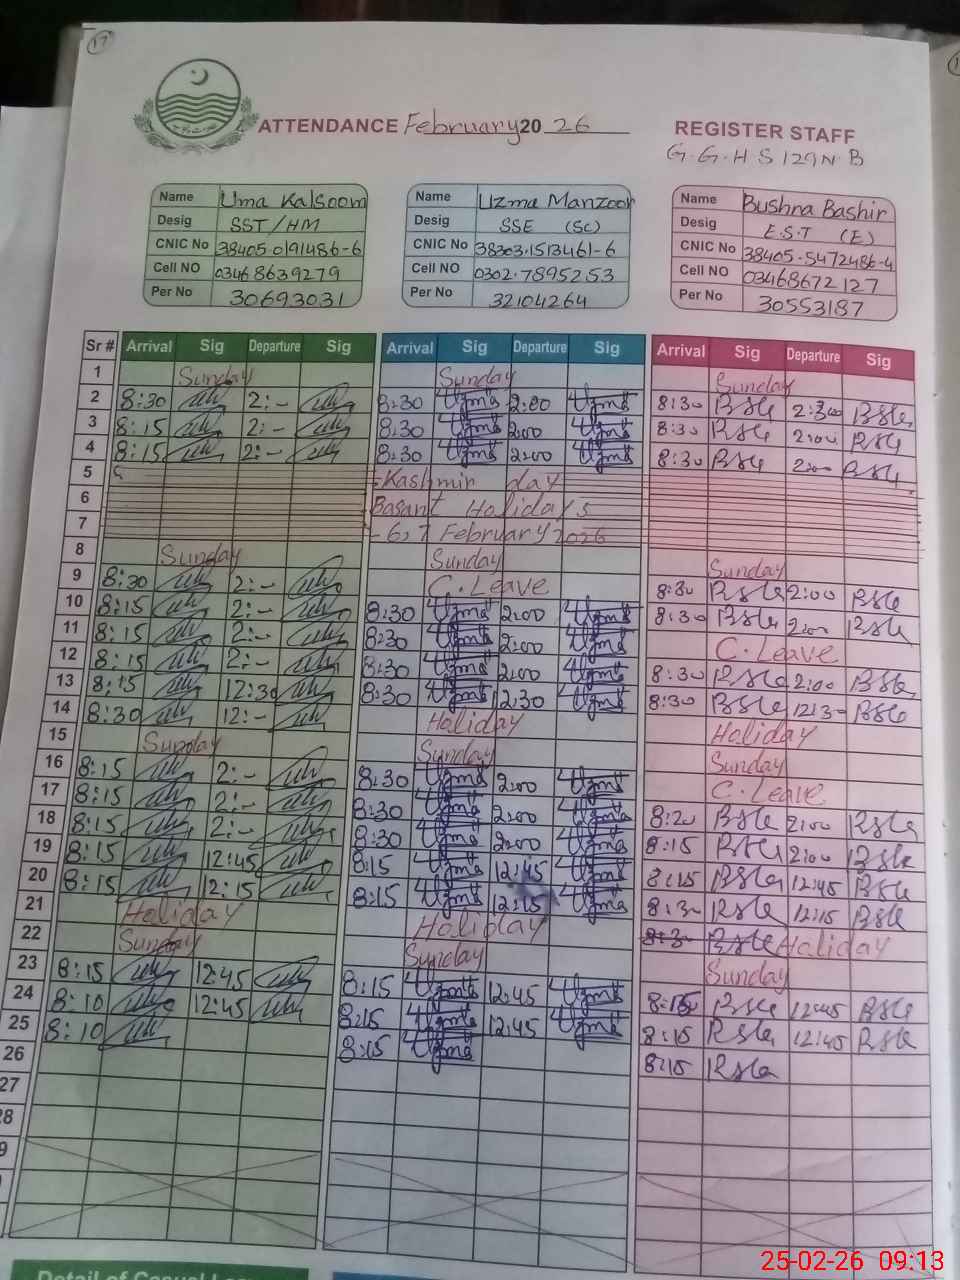 17
ATTENDANCE February 2026
REGISTER STAFF
G.G.H S 129 N.B
Name Uma Kalsoom
Desig SST/HM
CNIC No 38405-0191486-6
Cell NO 03468639279
Per No 30693031
Name Uzma Manzoor
Desig SSE (Sc)
CNIC No 38303-1513461-6
Cell NO 0302-7895253
Per No 32104264
Name Bushra Bashir
Desig E.S.T (E)
CNIC No 38405-5472486-4
Cell NO 03468672127
Per No 30553187
Sr # Arrival Sig Departure Sig Arrival Sig Departure Sig Arrival Sig Departure Sig
1 Sunday Sunday Sunday
2 8:30 2:- 8:30 Uzma 2:00 Uzma 8:30 2:00
3 8:15 2:- 8:30 Uzma 2:00 Uzma 8:30 2:00
4 8:15 2:- 8:30 Uzma 2:00 Uzma 8:30 2:00
5 Kashmir day
6 Basant Holidays
7 - 6,7 February 2026
8 Sunday Sunday Sunday
9 8:30 2:- C.Leave 8:30 2:00
10 8:15 2:- 8:30 Uzma 2:00 Uzma 8:30 2:00
11 8:15 2:- 8:30 Uzma 2:00 Uzma C.Leave
12 8:15 2:- 8:30 Uzma 2:00 Uzma 8:30 2:00
13 8:15 12:30 8:30 Uzma 12:30 Uzma 8:30 12:30
14 8:30 12:- Holiday Holiday
15 Sunday Sunday Sunday
16 8:15 2:- 8:30 Uzma 2:00 Uzma C.Leave
17 8:15 2:- 8:30 Uzma 2:00 Uzma 8:20 2:00
18 8:15 2:- 8:30 Uzma 2:00 Uzma 8:15 2:00
19 8:15 12:45 8:15 Uzma 12:45 Uzma 8:15 12:45
20 8:15 12:15 8:15 Uzma 12:15 Uzma 8:30 12:15
21 Holiday Holiday Holiday
22 Sunday Sunday Sunday
23 8:15 12:45 8:15 Uzma 12:45 Uzma 8:15 12:45
24 8:10 12:45 8:15 Uzma 12:45 Uzma 8:15 12:45
25 8:10 8:15 Uzma 8:15
26
27
28
9
25-02-26 09:13